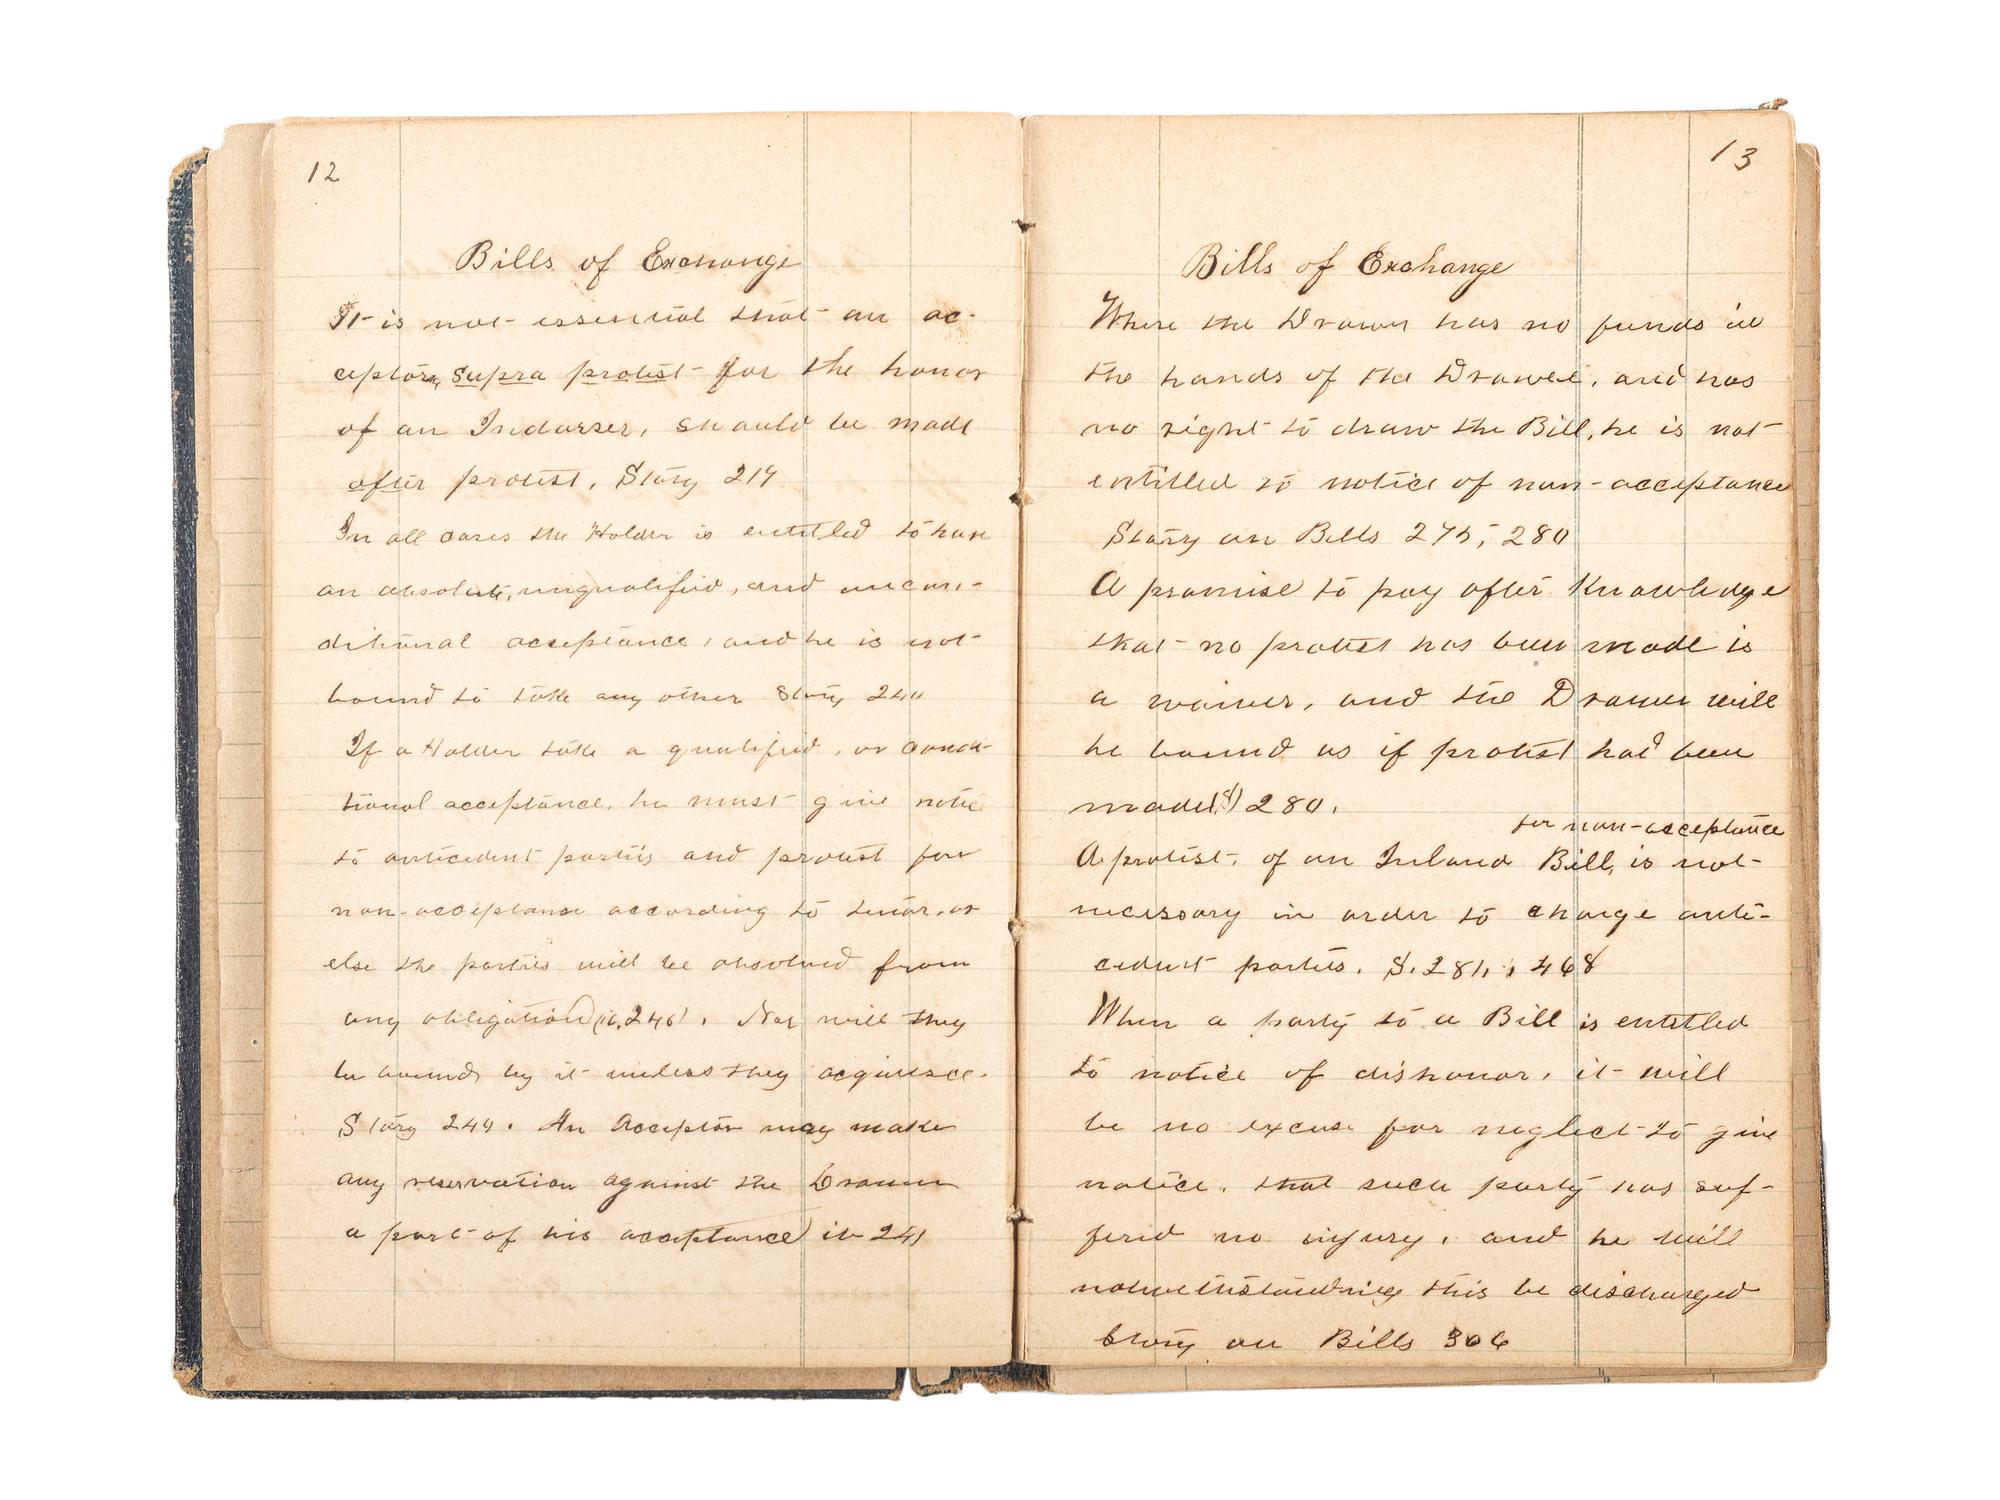 12
Bills of Exchange
It is not essential that an ac-
ceptor, supra protest for the honor
of an Indorser, should be made
after protest, Story 219
In all cases the Holder is entitled to have
an absolute, unqualified, and uncon-
ditional acceptance, and he is not
bound to take any other Story 240
If a Holder take a qualified, or condi-
tional acceptance, he must give notice
to antecedent parties and protest for
non-acceptance according to tenor, or
else the parties will be absolved from
any obligation (ib, 240). Nor will they
be bound by it unless they acquiesce.
Story 240. An Acceptor may make
any reservation against the Drawer
a part of his acceptance ib 241
13
Bills of Exchange
Where the Drawer has no funds in
the hands of the Drawee, and has
no right to draw the Bill, he is not
entitled to notice of non-acceptance
Story on Bills 275, 280
A promise to pay after Knowledge
that no protest has been made is
a waiver, and the Drawer will
be bound as if protest had been
made (S) 280.
for non-acceptance
A protest, of an Inland Bill, is not
necessary in order to charge ante-
cedent parties. S. 281, 468
When a party to a Bill is entitled
to notice of dishonor, it will
be no excuse for neglect to give
notice, that such party has suf-
fered no injury, and he will
notwithstanding this be discharged
Story on Bills 306